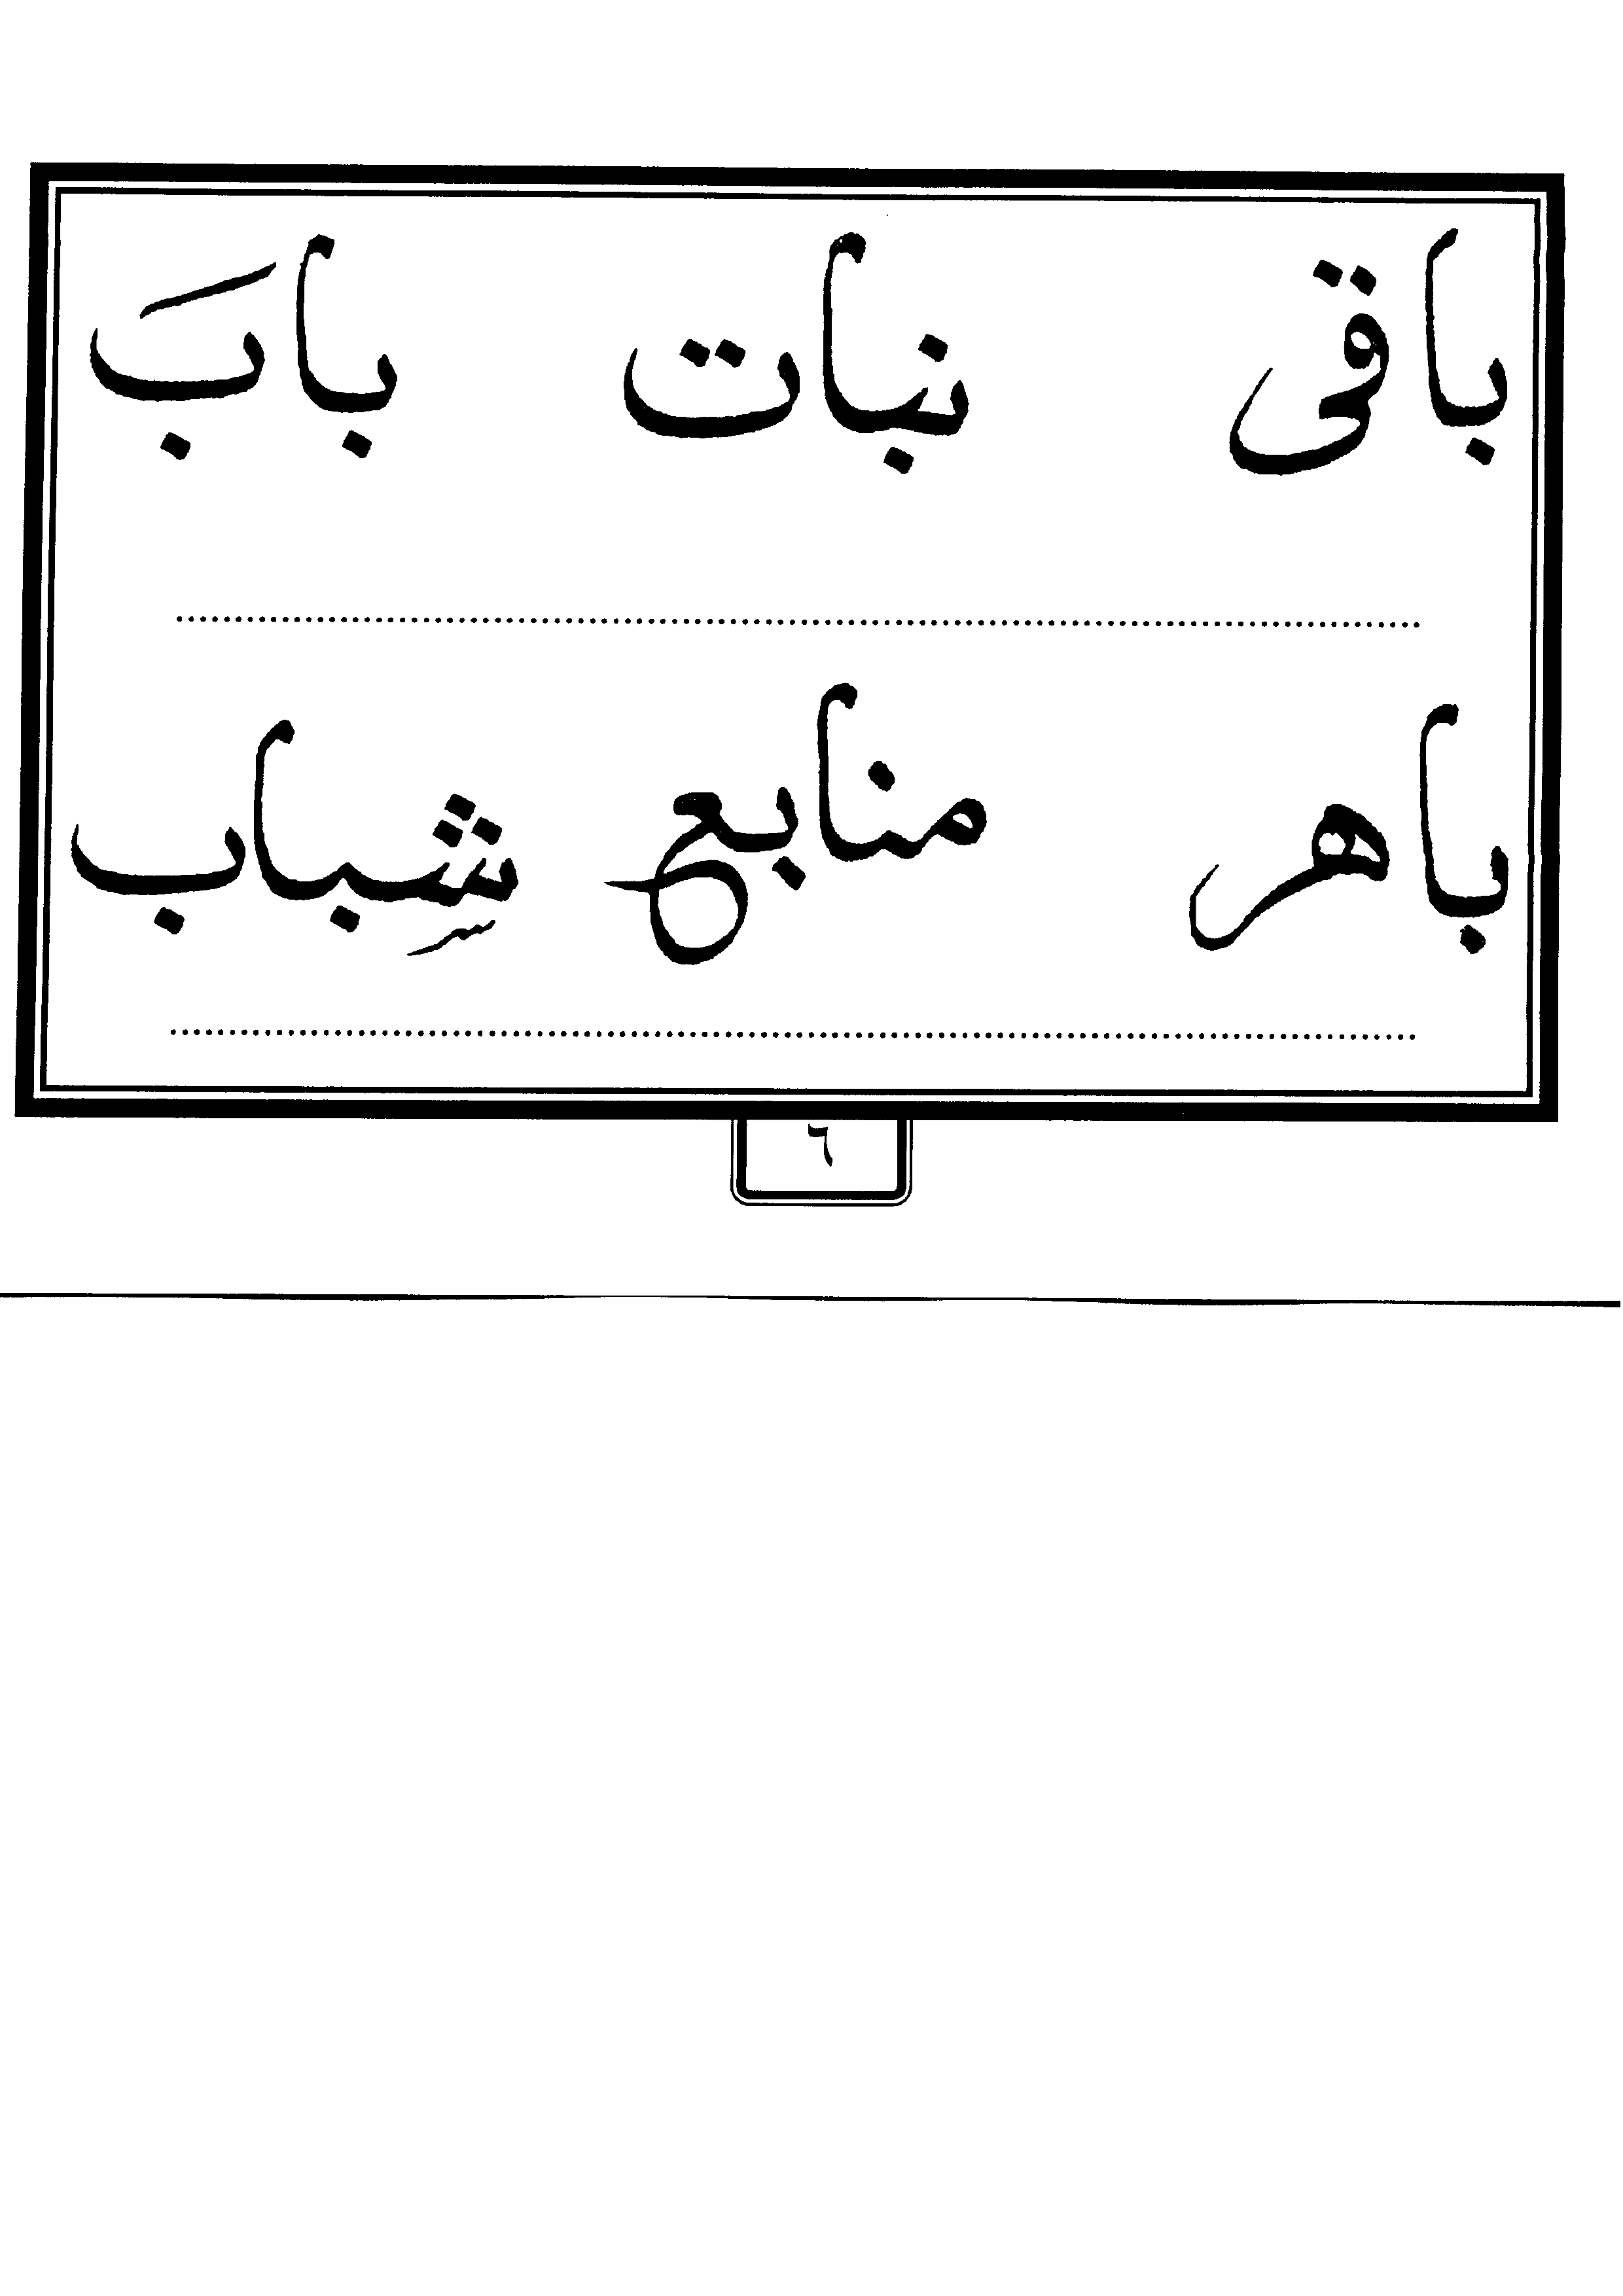 باقى نبات بابَ
باهر منابع شِباب
٦